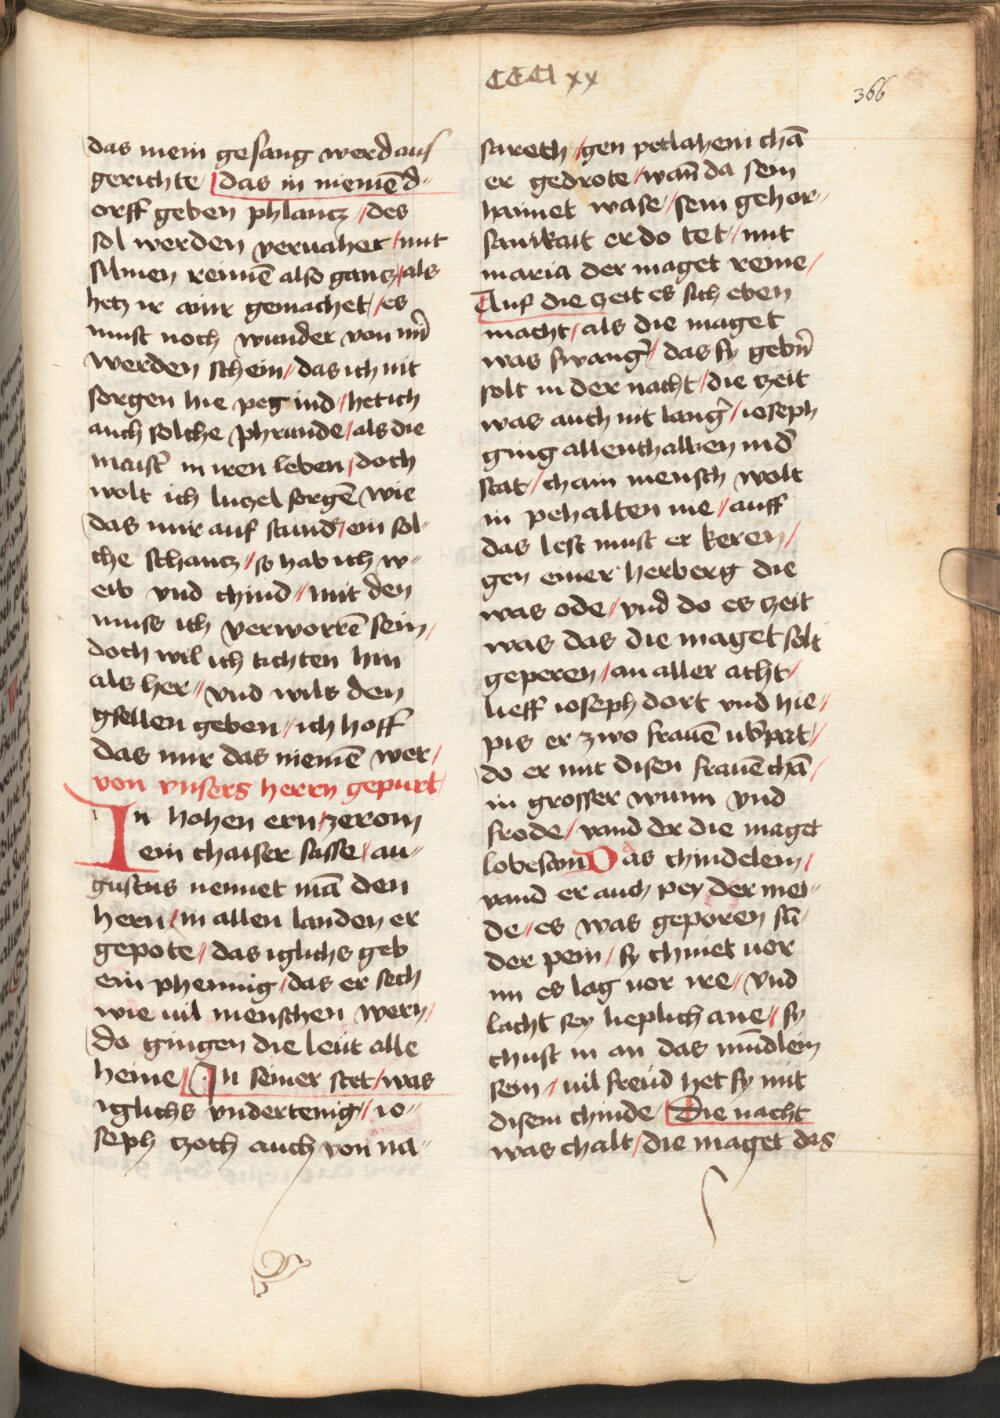 CCClxx
366
das mein gesang werd aus
gerichte / das in niemē d-
orff geben phlancz / des
sol werden vernahet / mit
silmen reimē also gancz / als
hetz ir wir gemachet / es
must noch wunder von mir̄
werden schein / das ich nit
sorgen hie peg ind / het ich
auch solche phrunde / als die
maist̄ in iren leben / doch
wolt ich luczel sorgē wie
das mir auf stund / ein sol-
che schancz / so hab ich w-
eib vnd chind / mit den
muss ich verworrē sein /
doch wil ich tichten hin
als her // vnd wils den
gsellen geben / ich hoff
das mir das niemē wer /
von vnsers herrn gepurt /
In hohen ern / ze rom
ein chaiser sasse / au-
gustus nennet mā den
hern / in allen landen er
gepote / das iglichs geb
ein phennig / das er sech
wie uil menschen wern /
do gingen die leüt alle
heime // In seiner stet / was
iglichs vndertenig // io-
seph zoch auch von na-
sareth / gen petlahem chā
er gedrote / wān da sein
haimet wase / sein gehor-
samkait er do tet / mit
maria der maget reine /
Auf die zeit es sich eben
macht / als die maget
was swanḡ / das sy gebn̄
solt in der nacht / die zeit
was auch nit lanḡ / ioseph
ging allenthalben in d̄
stat / chain mensch wolt
in pehalten nie / auff
das lest must er keren /
gen einer herberg die
was ode / vnd do es zeit
was das die maget solt
geperen / an aller acht /
lieff ioseph dort vnd hie /
pis er zwo frauē irb̄pat /
do er mit disen frauē chā /
in grosser wunn vnd
frode / vand er die maget
lobesam Das chindelein /
vand er auch pey der mei-
de / es was geporen sū-
der pein / sy chniet uor
im es lag uor ire / vnd
lacht sey lieplich ane // sy
chust in an das mūdlein
sein / uil freüd het sy mit
disem chinde / Die nacht
was chalt / die maget das